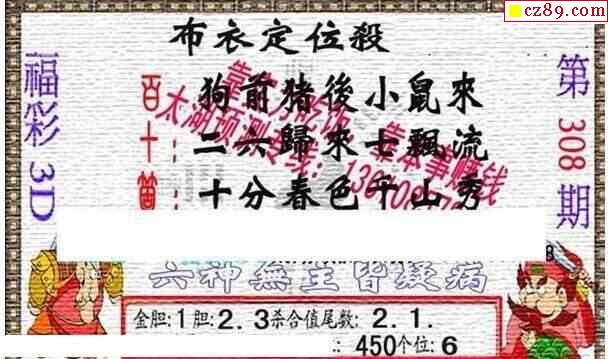 cz89.com
布衣定位殺
福彩3D
第308期
百：狗前猪後小鼠來
十：二六歸來士飄流
個：十分春色千山秀
六神無主皆癡病
金胆:1胆:2.3杀合值尾数:2.1.
::450个位:6